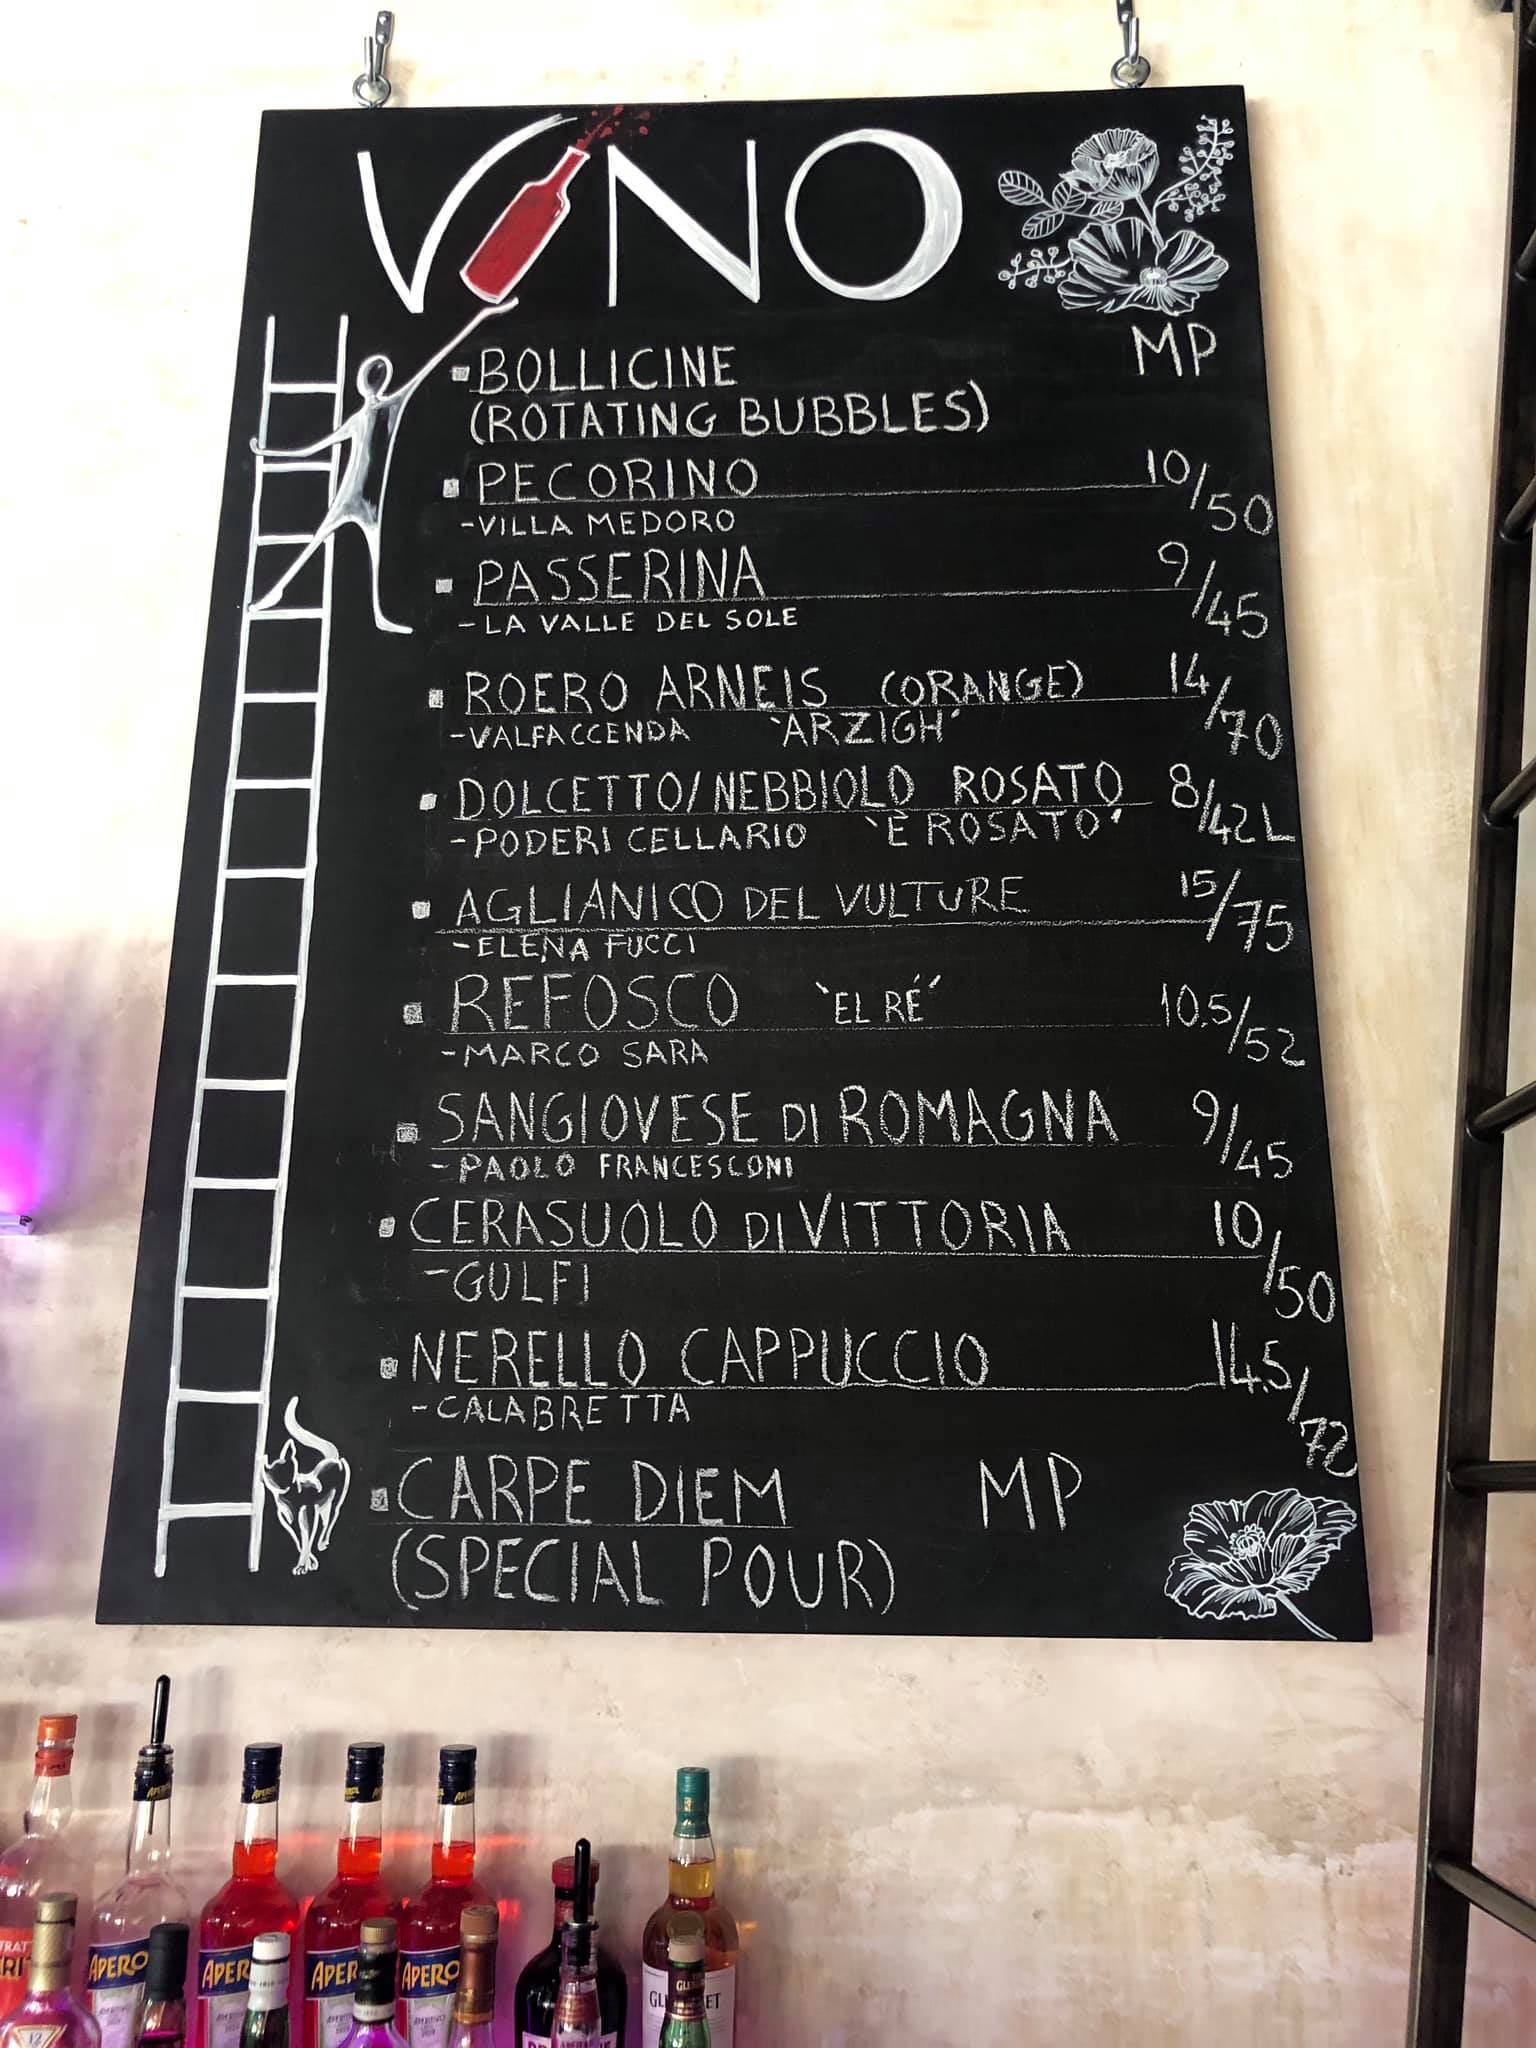 VINO
BOLLICINE MP
(ROTATING BUBBLES)
PECORINO 10/50
-VILLA MEDORO
PASSERINA 9/45
-LA VALLE DEL SOLE
ROERO ARNEIS (ORANGE) 14/70
-VALFACCENDA 'ARZIGH'
DOLCETTO/NEBBIOLO ROSATO 8/42L
-PODERI CELLARIO 'È ROSATO'
AGLIANICO DEL VULTURE 15/75
-ELENA FUCCI
REFOSCO 'EL RÉ' 10.5/52
-MARCO SARA
SANGIOVESE DI ROMAGNA 9/45
-PAOLO FRANCESCONI
CERASUOLO DI VITTORIA 10/50
-GULFI
NERELLO CAPPUCCIO 14.5/72
-CALABRETTA
CARPE DIEM MP
(SPECIAL POUR)
APERO APER APER APERO
12